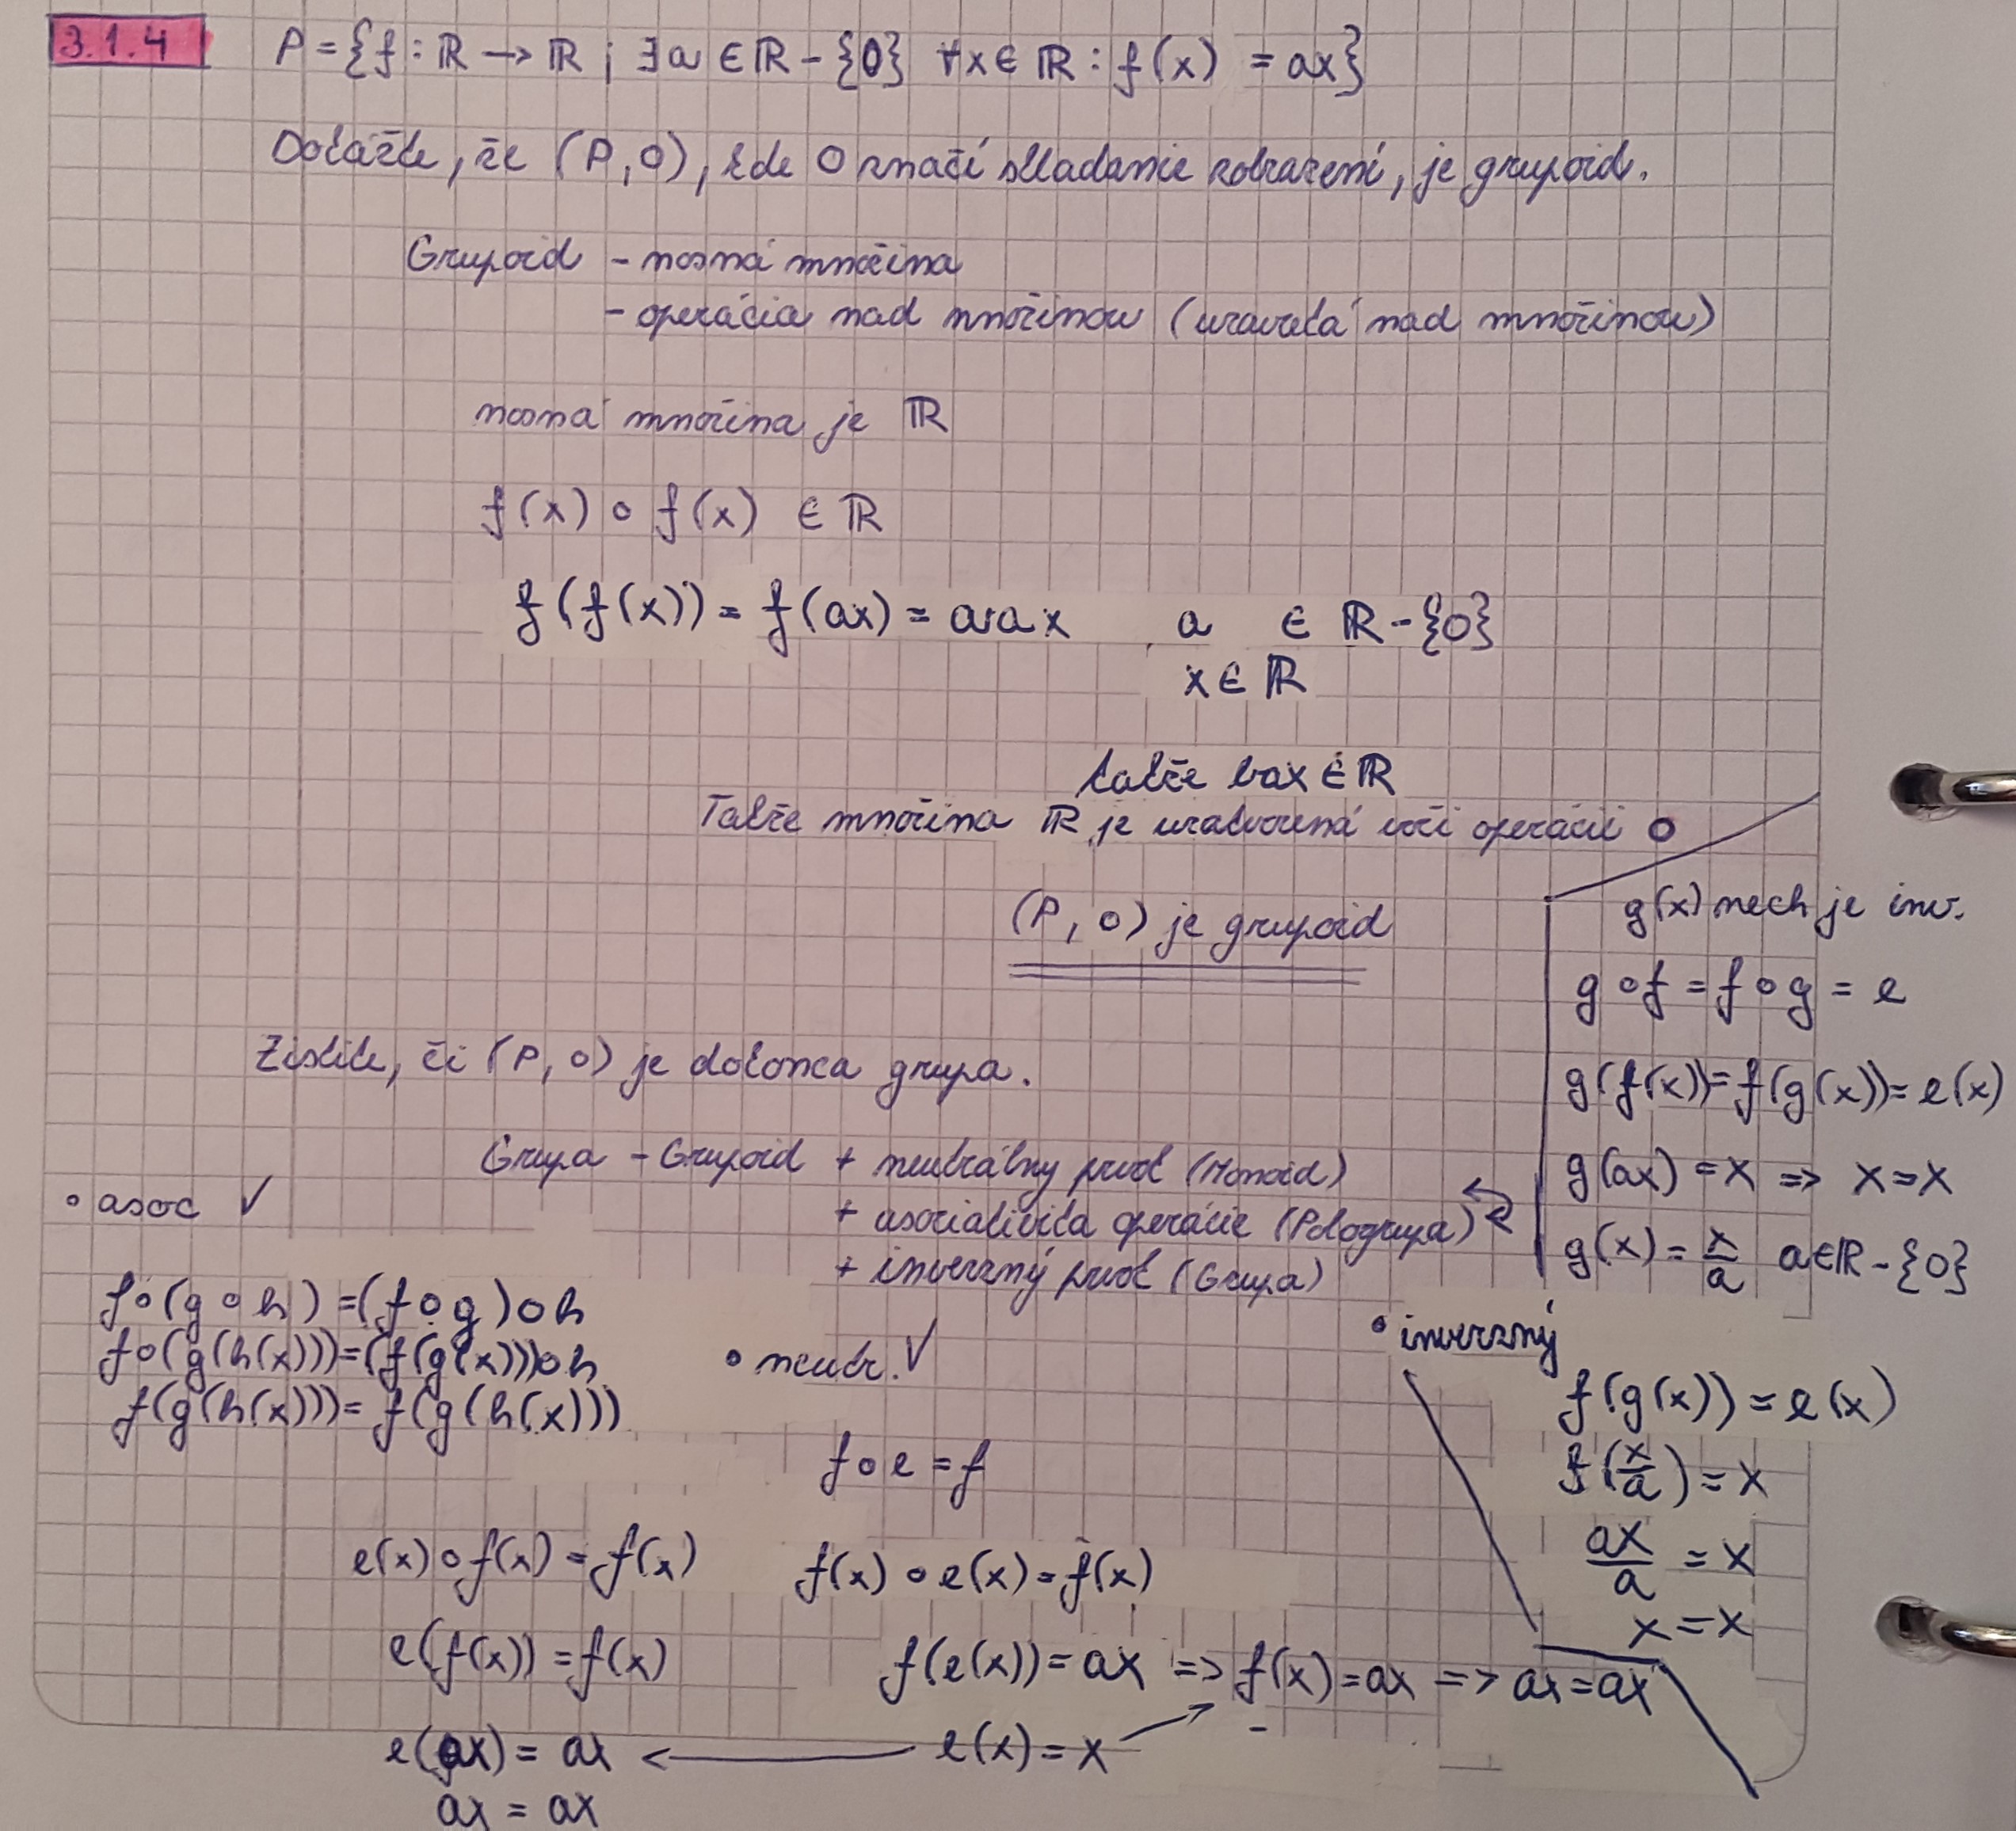 3.1.4 P = {f : ℝ → ℝ ; ∃a ∈ ℝ - {0} ∀x ∈ ℝ : f(x) = ax}
Dokážte, že (P, o), kde o značí skladanie zobrazení, je grupoid.
Grupoid - nosná množina
- operácia nad množinou (uzavretá nad množinou)
nosná množina je ℝ
f(x) o f(x) ∈ ℝ
f(f(x)) = f(ax) = a·a x a ∈ ℝ - {0}
x ∈ ℝ
takže bax ∈ ℝ
Takže množina ℝ je uzatvorená voči operácii o
(P, o) je grupoid
Zistite, či (P, o) je dokonca grupa.
Grupa - Grupoid + neutrálny prvok (Monoid)
+ asociativita operácie (Pologrupa)
+ inverzný prvok (Grupa)
• asoc ✓
f o (g o h) = (f o g) o h
f o (g(h(x))) = (f(g(x))) o h
f(g(h(x))) = f(g(h(x)))
• neutr. ✓
f o e = f
e(x) o f(x) = f(x) f(x) o e(x) = f(x)
e(f(x)) = f(x) f(e(x)) = ax => f(x) = ax => ax = ax
e(ax) = ax ← e(x) = x
ax = ax
• inverzný
g(x) nech je inv.
g o f = f o g = e
g(f(x)) = f(g(x)) = e(x)
g(ax) = x => x = x
g(x) = x/a a ∈ ℝ - {0}
f(g(x)) = e(x)
f(x/a) = x
ax/a = x
x = x